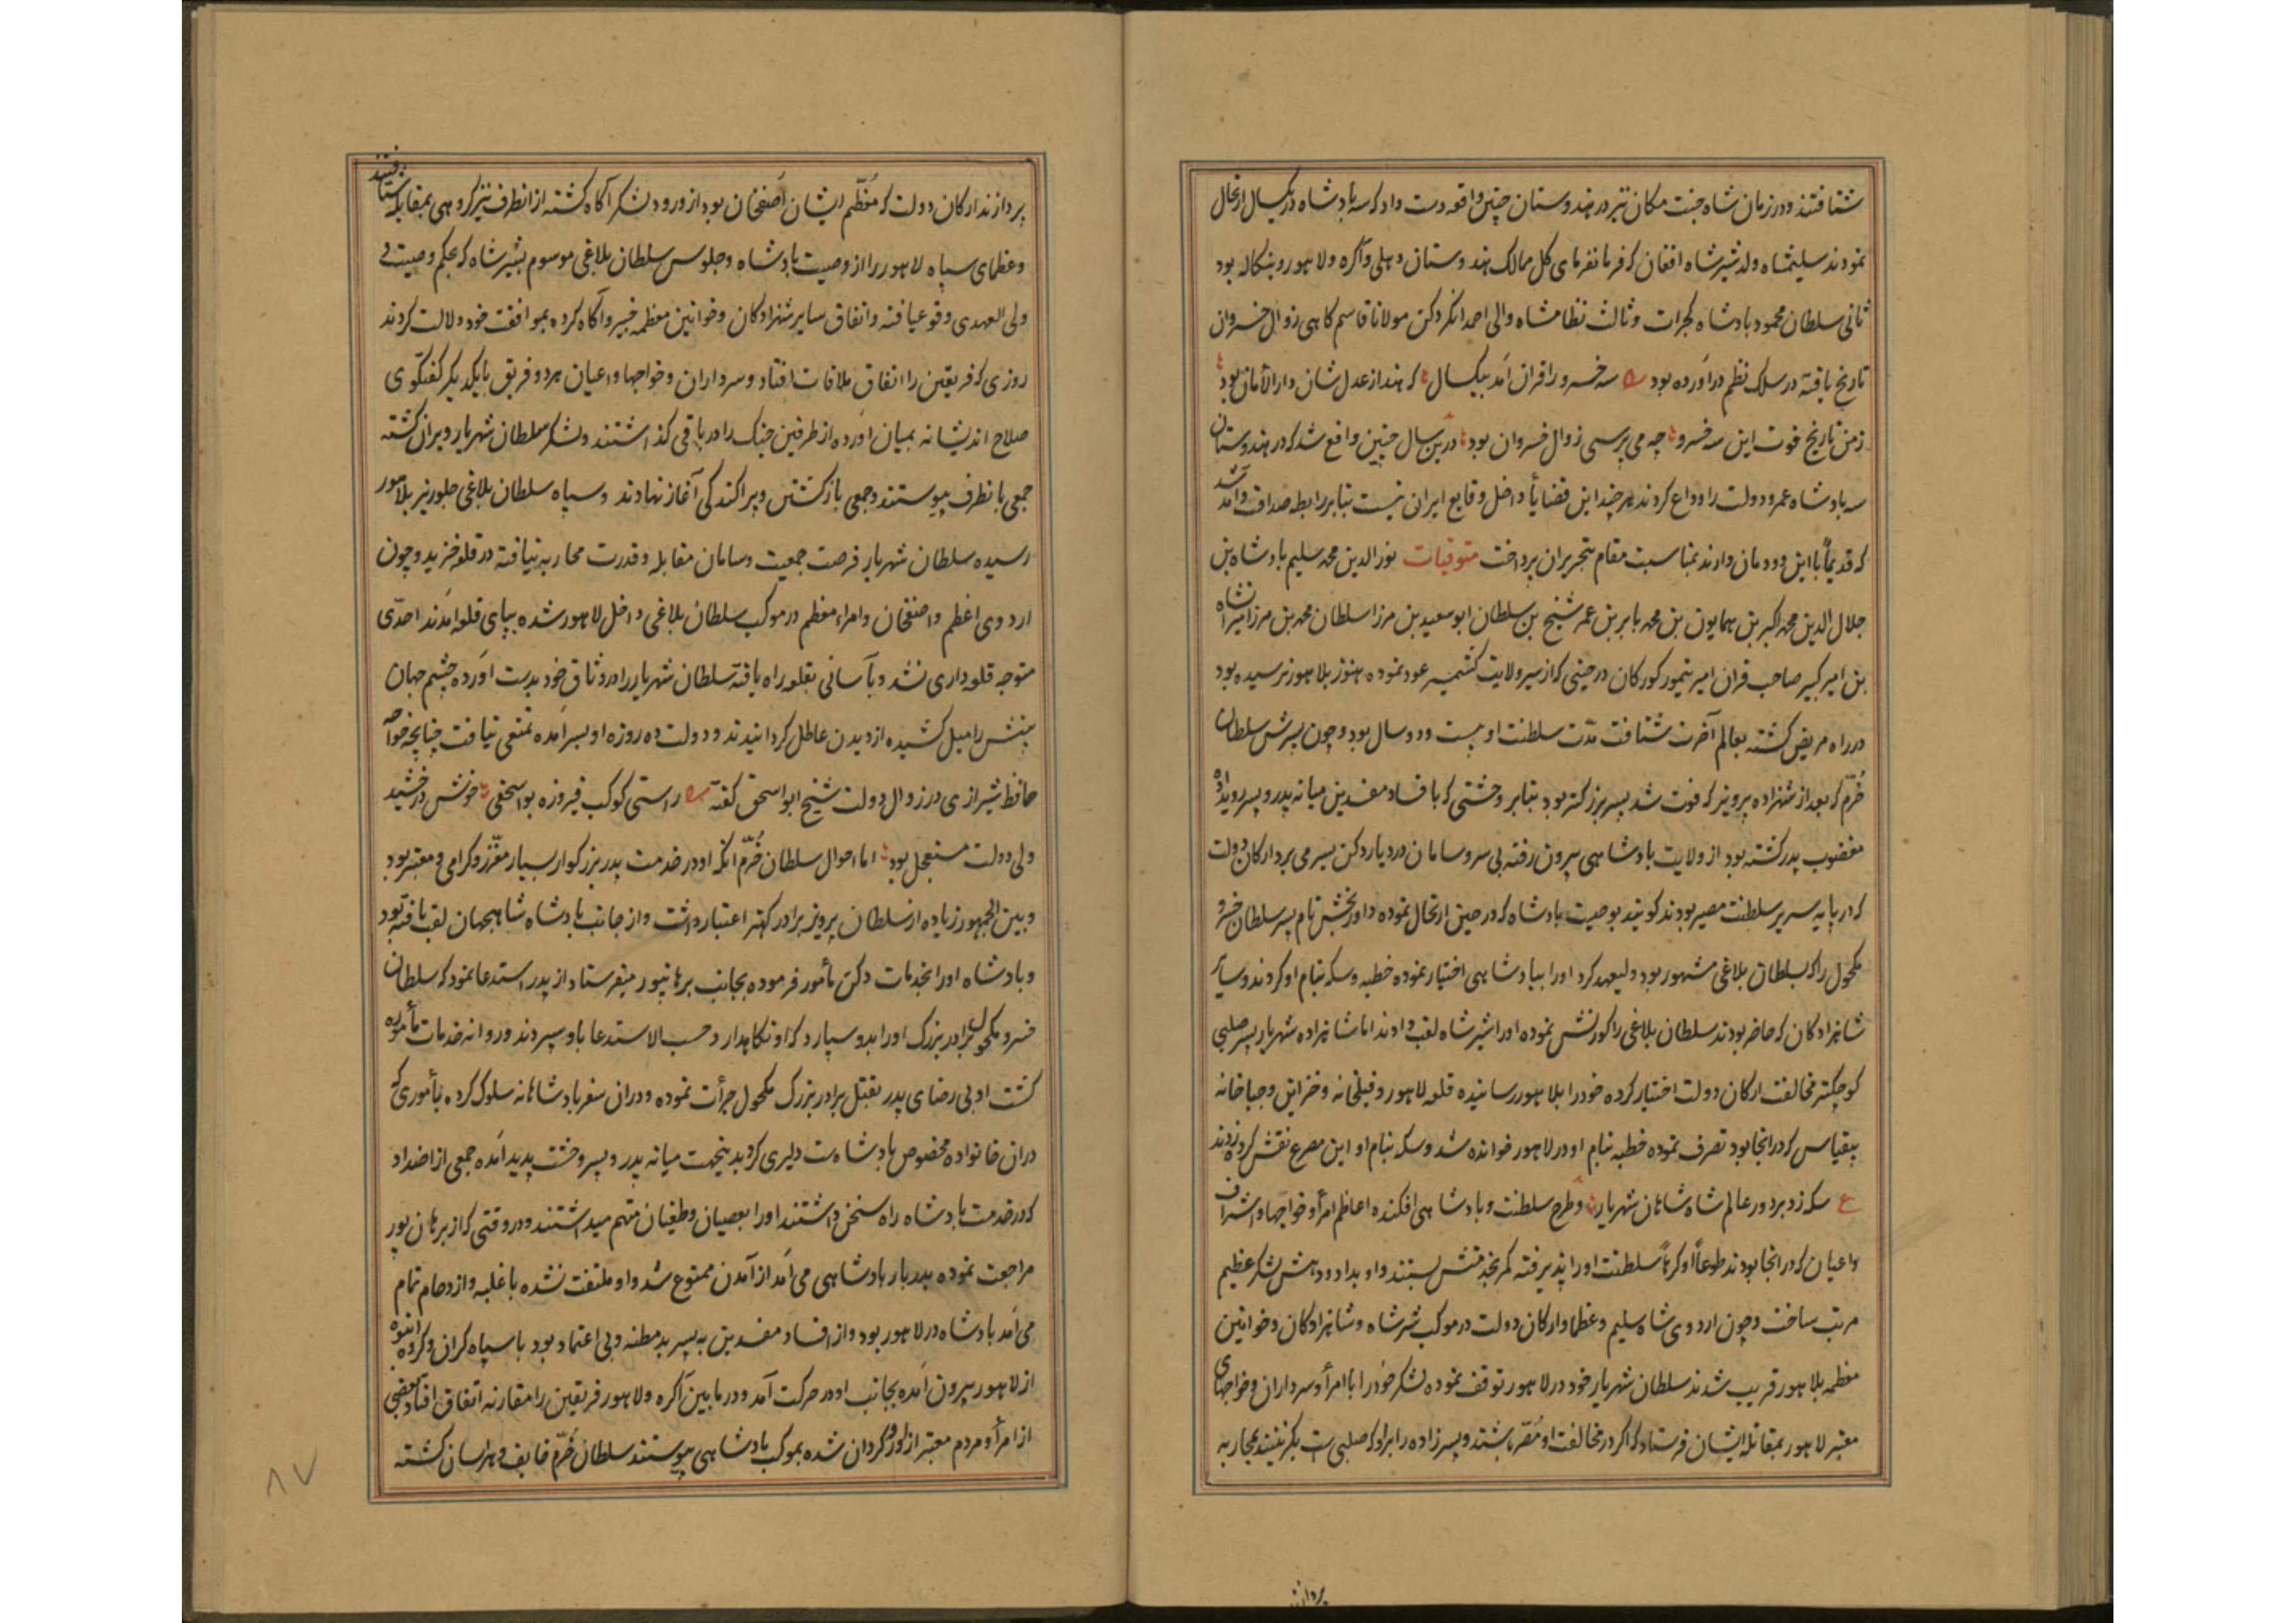 شتافتند و در زمان شاه جنت مکان نیز در هندوستان چنین واقعه دست داد که سه پادشاه در یکسال ارتحال
نمودند سلیمشاه ولد شیر شاه افغان که فرمانفرمای کل ممالک هندوستان دهلی و آکره و لاهور و بنکاله بود
ثانی سلطان محمود پادشاه کجرات و ثالث نظامشاه والی احمدانکر دکن مولانا قاسم کاهی زوال خسروان
تاریخ یافته در سلک نظم درآورده بود سه خسرو را قران آمد بیکسال که هند از عدل شان دارالأمان بود
زمن تاریخ فوت این سه خسرو چه می پرسی زوال خسروان بود درین سال چنین واقع شد که در هندوستان
سه پادشاه عمر و دولت را وداع کردند هرچند این قضایا داخل وقایع ایران نیست بنابر رابطه صداقت و آمد شد
که قدیماً با این دودمان دارند بمناسبت مقام بتحریر آن پرداخت متوفیات نورالدین محمد سلیم پادشاه بن
جلال الدین محمد اکبر بن همایون بن محمد بابر بن عمر شیخ بن سلطان ابو سعید بن مرزا سلطان محمد بن مرزا میرانشاه
بن امیر کبیر صاحب قران امیر تیمور کورکان در حینی که از سیر ولایت کشمیر عود نموده هنوز بلاهور نرسیده بود
در راه مریض کشته بعالم آخرت شتافت مدّت سلطنت او بیست و دو سال بود و چون پسرش سلطان
خُرّم که بعد از شهزاده پرویز که فوت شد پسر بزرکتر بود بنابر وحشتی که با فساد مفسدین میانه پدر و پسر رویداده
مغضوب پدر کشته بود از ولایت پادشاهی بیرون رفته بی سر و سامان در دیار دکن بسر می برد ارکان دولت
که در پایه سریر سلطنت مصیر بودند کویند بوصیت پادشاه که در حین ارتحال نموده داور بخش نام پسر سلطان خسرو
مکحول را که بسلطان بلاغی مشهور بود ولیعهد کرد او را بپادشاهی اختیار نموده خطبه و سکه بنام او کردند و سایر
شاهزادکان که حاضر بودند سلطان بلاغی را کورنش نموده او را شیر شاه لقب دادند اما شاهزاده شهریار پسر صلبی
کوچکتر مخالفت ارکان دولت اختیار کرده خود را بلاهور رسانیده قلعه لاهور و فیلخانه و خزاین و جباخانه
بیقیاس که در انجا بود تصرف نموده خطبه بنام او در لاهور خوانده شد و سکه بنام او این مصرع نقش کرده زدند
ع سکه زد بر دور عالم شاه شاهان شهریار و طرح سلطنت و پادشاهی افکنده اعاظم امرأ و خواجها و اشراف
و اعیان که در انجا بودند طوعاً او کرهاً سلطنت او را پذیرفته کمر بخدمتش بستند و او بداد و دهش لشکر عظیم
مرتب ساخت و چون اردوی شاه سلیم و عظما و ارکان دولت در موکب شیر شاه و شاهزادکان و خوانین
معظمه بلاهور قریب شدند سلطان شهریار خود در لاهور توقف نموده لشکر خود را با امرأ و سرداران و خواجهای
معتبر لاهور بمقابله ایشان فرستاد که اکر در مخالفت او مُصّر باشند و پسرزاده را بر او که صلبی ست بکزینند بمحاربه
پردازند
پردازند ارکان دولت که معظّم ایشان آصفخان بود از ورود لشکر آکاه کشته از انطرف نیز کروهی بمقابله شتافتند
و عظمای سپاه لاهور را از وصیت پادشاه و جلوس سلطان بلاغی موسوم بشیر شاه که بحکم وصیت
ولی العهدی وقوع یافته و اتفاق سایر شهزادکان و خوانین معظمه خبیر و آکاه کرده بموافقت خود دلالت کردند
روزی که فریقین را اتفاق ملاقات افتاد و سرداران و خواجها و اعیان هر دو فریق با یکدیکر کفتکوی
صلاح اندیشانه بمیان آورده از طرفین جنک را در باقی کذاشتند و لشکر سلطان شهریار ویران کشته
جمعی بانطرف پیوستند و جمعی بازکشتن و پراکندکی آغاز نهادند و سپاه سلطان بلاغی جلوریز بلاهور
رسیده سلطان شهریار فرصت جمعیت و سامان مقابله و قدرت محاربه نیافته در قلعه خزید و چون
اردوی اعظم و آصفخان و امراء معظم در موکب سلطان بلاغی داخل لاهور شده بپای قلعه آمدند احدّی
متوجه قلعه داری نشد و بآسانی بقلعه راه یافته سلطان شهریار را در وثاق خود بدست آورده چشم جهان
بینش را میل کشیده از دیدن عاطل کردانیدند و دولت ده روزه او بسر آمده تمتعی نیافت چنانچه خواجه
حافظ شیرازی در زوال دولت شیخ ابو اسحق کفته راستی کوکب فیروزه بواسحقی خوش درخشید
ولی دولت مستعجل بود اما احوال سلطان خُرّم آنکه او در خدمت پدر بزرکوار بسیار معزّز و کرامی و معتبر بود
و بین الجمهور زیاده از سلطان پرویز برادر کهتر اعتبار داشت و از جانب پادشاه شاهجهان لقب یافته بود
و پادشاه او را بخدمات دکن مأمور فرموده بجانب برهانپور میفرستاد از پدر استدعا نمود که سلطان
خسرو مکحول برادر بزرک او را بدو سپارد که او نکاهدارد حسب الاستدعا باو سپردند و روانه خدمات مأموره
کشت او بی رضای پدر بقتل برادر بزرک مکحول جرأت نموده و در ان سفر پادشاهانه سلوک کرده بأموری که
در ان خانواده مخصوص پادشاه ست دلیری کرد بدینجهت میانه پدر و پسر وحشت پدید آمده جمعی از اضداد
که در خدمت پادشاه راه سخن داشتند او را بعصیان و طغیان متهم میداشتند و در وقتی که از برهان پور
مراجعت نموده بدربار پادشاهی می آمد از آمدن ممنوع شد و او ملتفت نشده با غلبه و ازدحام تمام
می آمد پادشاه در لاهور بود و از افساد مفسدین به پسر بدمظنه و بی اعتماد بود با سپاه کران و کروه انبوه
از لاهور بیرون آمده بجانب او در حرکت آمد و در مابین آکره و لاهور فریقین را مقارنه اتفاق افتاد بعضی
از امرأ و مردم معتبر ازو روکردان شده بموکب پادشاهی پیوستند سلطان خُرّم خایف و هراسان کشته
۸۷